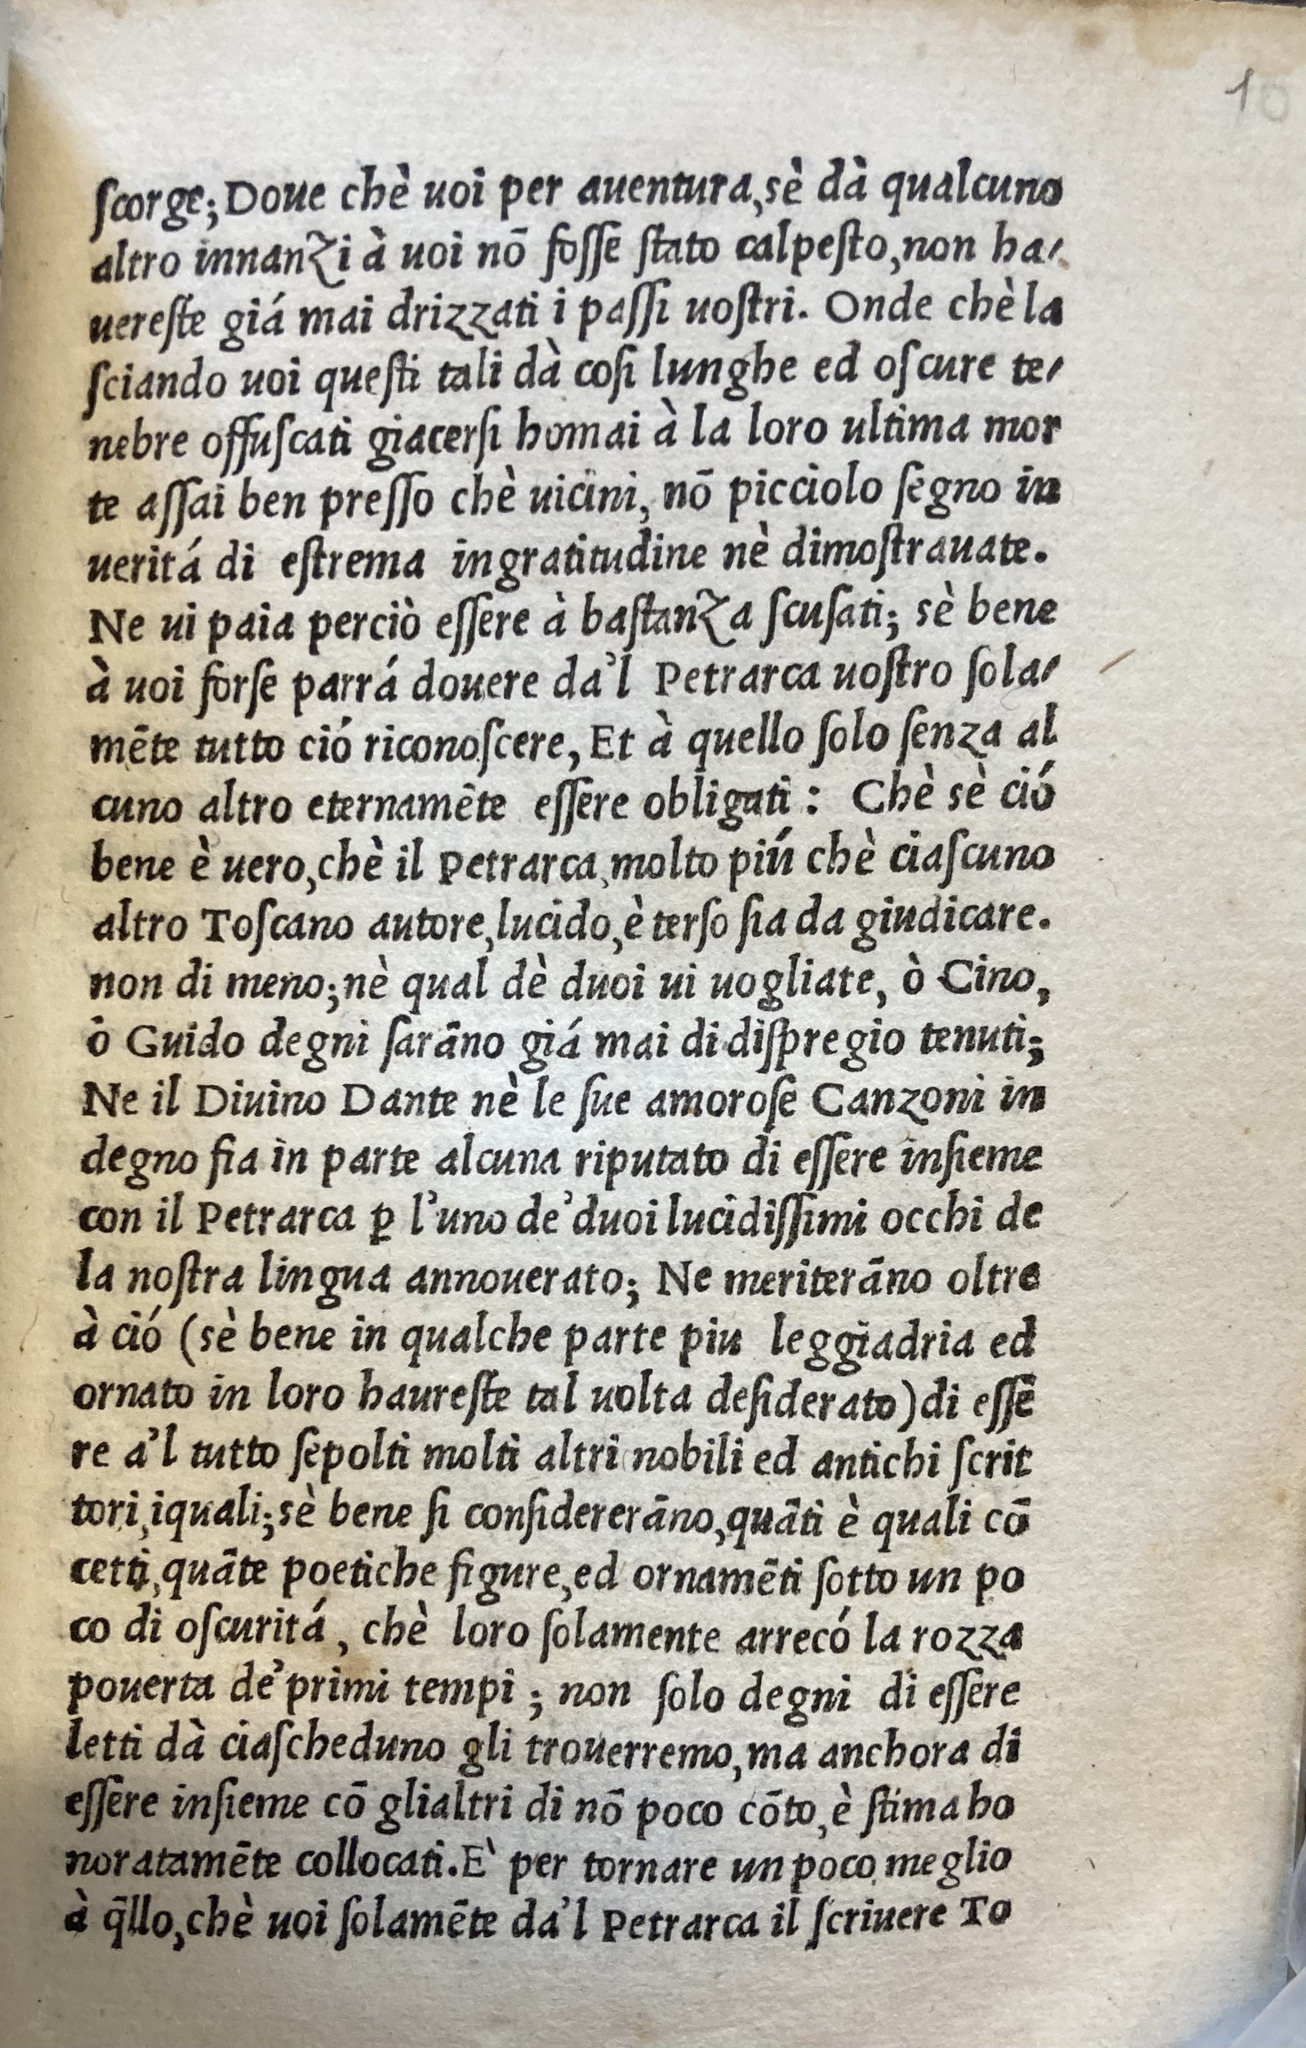 10
ſcorge; Doue chè uoi per auentura, sè dà qualcuno
altro innanzi à uoi nō foſſe ſtato calpeſto, non ha-
uereſte giá mai drizzati i paſſi uoſtri. Onde chè la
ſciando uoi queſti tali dà coſi lunghe ed oſcure te-
nebre offuſcati giacerſi homai à la loro ultima mor
te aſſai ben preſſo chè uicini, nō picciolo ſegno in
ueritá di eſtrema ingratitudine nè dimoſtrauate.
Ne ui paia perciò eſſere à baſtanza ſcuſati; sè bene
à uoi forſe parrá douere da'l Petrarca uoſtro ſola-
mēte tutto ció riconoſcere, Et à quello ſolo ſenza al
cuno altro eternamēte eſſere obligati: Chè sè ció
bene è uero, chè il Petrarca, molto piú chè ciaſcuno
altro Toſcano autore, lucido, è terſo ſia da giudicare.
non di meno; nè qual dè duoi ui uogliate, ò Cino,
ò Guido degni ſarāno giá mai di diſpregio tenuti;
Ne il Diuino Dante nè le ſue amoroſe Canzoni in
degno fia in parte alcuna riputato di eſſere inſieme
con il Petrarca ꝑ l'uno de'duoi lucidiſſimi occhi de
la noſtra lingua annouerato; Ne meriterāno oltre
à ció (sè bene in qualche parte piu leggiadria ed
ornato in loro haureſte tal uolta deſiderato) di eſſē
re a'l tutto ſepolti molti altri nobili ed antichi ſcrit
tori, iquali; sè bene ſi conſidererāno, quāti è quali cō
cetti, quāte poetiche figure, ed ornamēti ſotto un po
co di oſcuritá, chè loro ſolamente arrecó la rozza
pouerta de'primi tempi; non ſolo degni di eſſere
letti dà ciaſcheduno gli trouerremo, ma anchora di
eſſere inſieme cō glialtri di nō poco cōto, è ſtima ho
noratamēte collocati. E' per tornare un poco meglio
à q̄llo, chè uoi ſolamēte da'l Petrarca il ſcriuere To